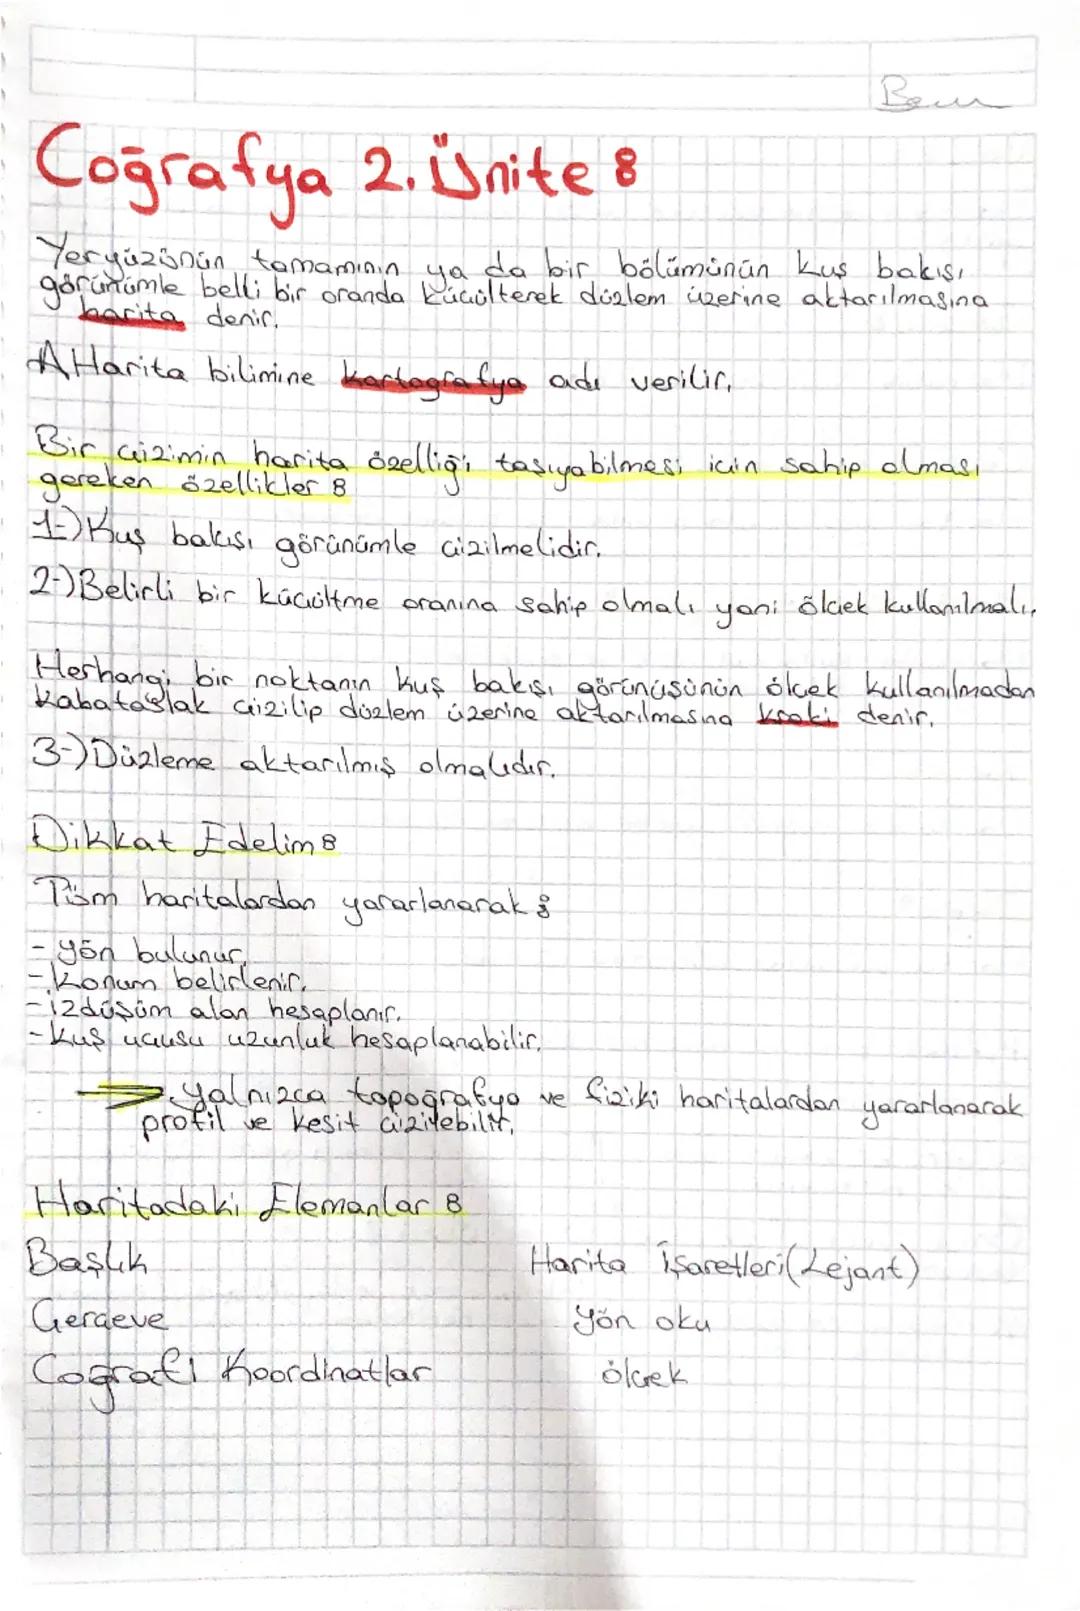 Coğrafya 2. Ünite :
Yeryüzünün tamamının ya da bir bölümünün kuş bakışı
görünümle belli bir oranda küçülterek düzlem üzerine aktarılmasına
harita denir.
Harita bilimine kartografya adı verilir.
Bir çizimin harita özelliği taşıyabilmesi için sahip olması
gereken özellikler :
1-) Kuş bakışı görünümle çizilmelidir.
2-) Belirli bir küçültme oranına sahip olmalı yani ölçek kullanılmalı.
Herhangi bir noktanın kuş bakışı görünüşünün ölçek kullanılmadan
kabataslak çizilip düzlem üzerine aktarılmasına kroki denir.
3-) Düzleme aktarılmış olmalıdır.
Dikkat Edelim :
Tüm haritalardan yararlanarak :
- Yön bulunur.
- Konum belirlenir.
- İzdüşüm alan hesaplanır.
- Kuş uçuşu uzunluk hesaplanabilir.
→ Yalnızca topoğrafya ve fiziki haritalardan yararlanarak
profil ve kesit çizilebilir.
Haritadaki Elemanlar :
Başlık Harita İşaretleri (Lejant)
Çerçeve Yön oku
Coğrafi Koordinatlar ölçek